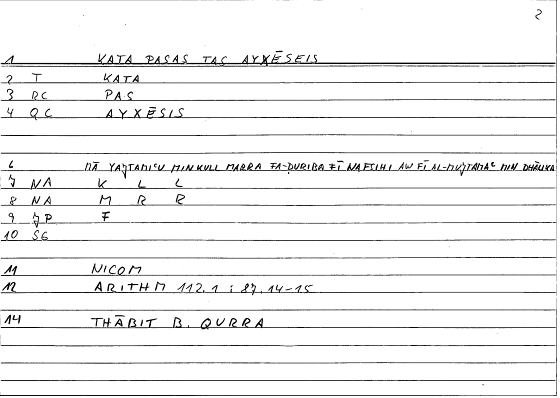 2
1 KATA PASAS TAS AYXĒSEIS
2 T KATA
3 RC PAS
4 QC AYXĒSIS
6 MĀ YAǦTAMIᶜU MIN KULL MARRA FA-ḌURIBA FĪ NAFSIHI AW FĪ AL-MUǦTAMAᶜ MIN DHĀLIKA
7 NA K L L
8 NA M R R
9 ǦP F
10 SG
11 NICOM
12 ARITHM 112.1 ; 87.14-15
14 THĀBIT B. QURRA